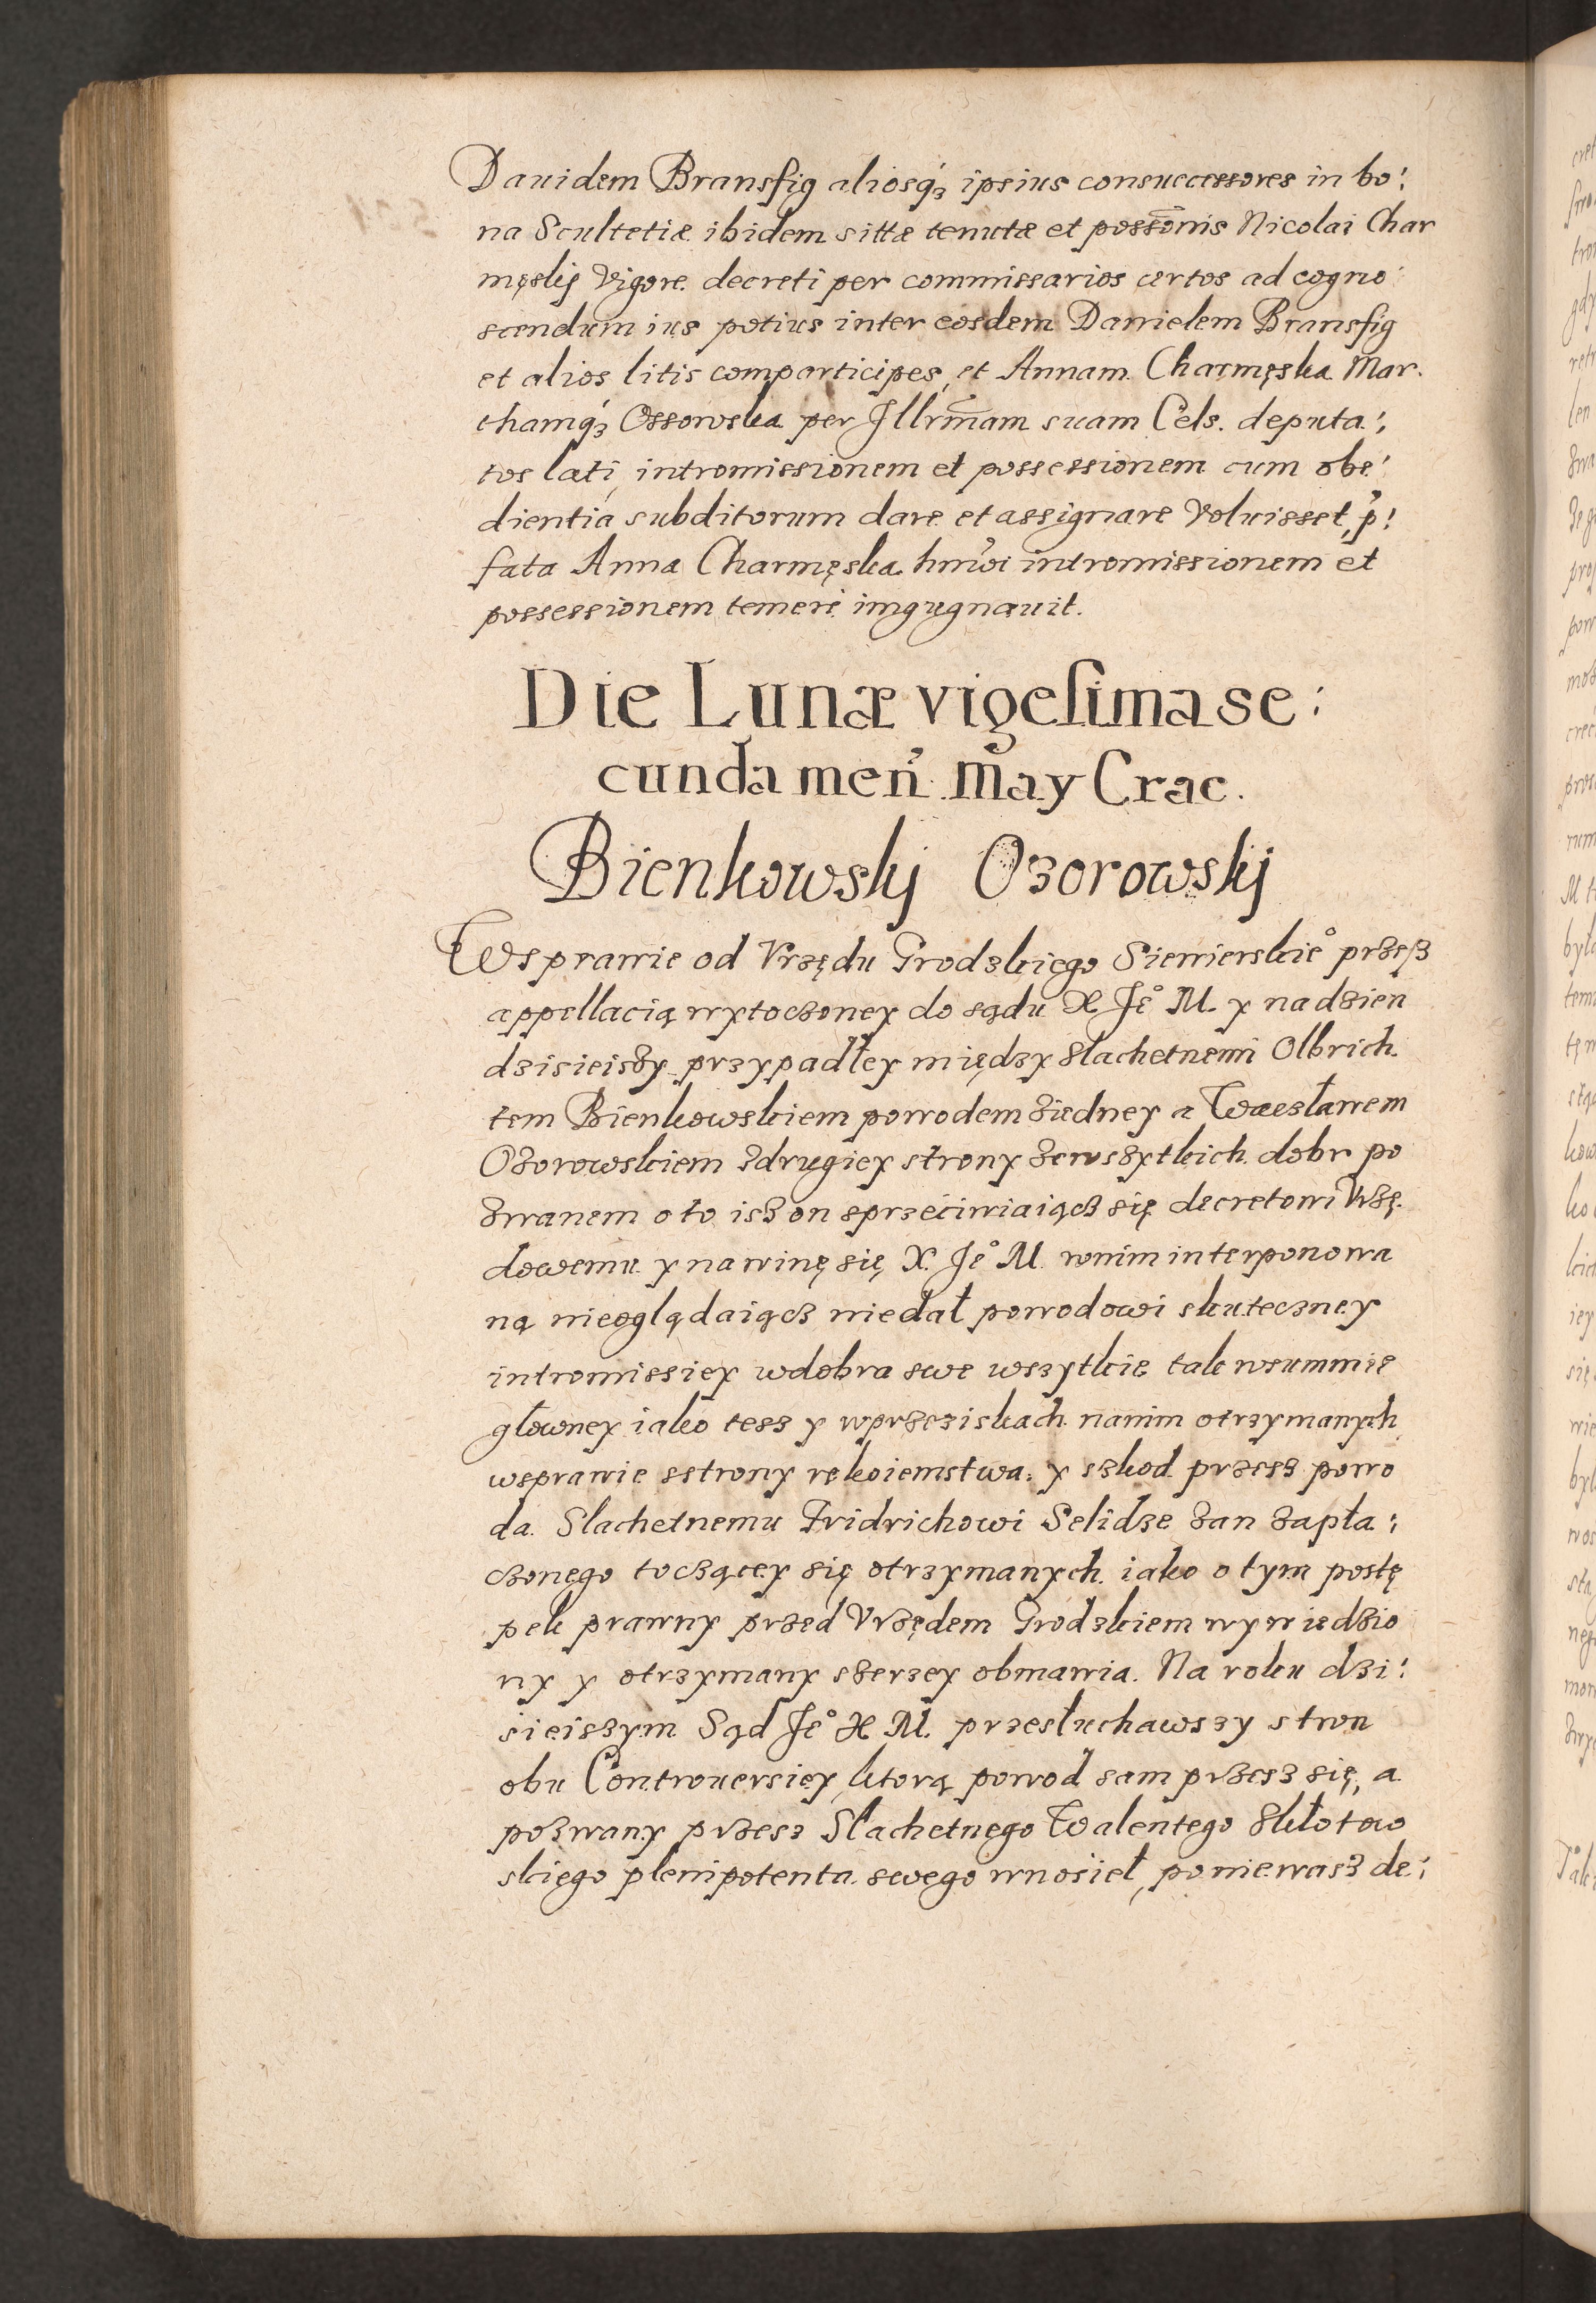 Dauidem Bransfig aliosq́ꝫ ipsius consuccessores in bo:
na Scultetiæ ibidem sittæ tenutæ et possōnis Nicolai Char
męskij Vigore decreti per commissarios certos ad cogno:
scendum ius potius inter eosdem Danielem Bransfig
et alios litis comparticipes, et Annam Charmęska Mar.
thamq́ꝫ Ossowska per Jllrm̃am suam Cels. deputa:
tos lati, intromissionem et possessionem cum obe:
dientia subditorum dare et assignare Voluisset, p̃:
fata Anna Charmęska hmõi intromissionem et
possessionem temerè imgugnauit.
Die Lunæ vigesima se:
cunda meñ. May Crac.
Bienkowskj Ozorowskij
W sprawie od Vrzędu Grodzkiego Siewierskie° przesz
appellacią wytoczoney do sądu X Je° M. y na dzien
dzisieiszy przypadłey między slachetnemi Olbrich.
tem Bienkowskiem powodem ziedney a Waesławem
Ozorowskiem zdrugiey strony zewszytkich dobr po
zwanem o to isz on sprzeciwiaiącz się decretowi Vrzę.
dowemu y na winę się X. Je° M. wnim interponowa
ną nieoglądaiącz niedał powodowi skuteczney
intromissiey wdobra swe wszytkie tak wsummie
głowney iako tesz y wprzeziskach nanim otrzymanych
wsprawie sstrony rękoiemstwa: y szkod przesz powo
da Slachetnemu Fridrichowi Selidze zan zapła:
czonego toczącey się otrzymanych iako o tym postę
pek prawny przed Vrzędem Grodzkiem wywiedzio
ny y otrzymany szerzey obmawia. Na roku dzi:
sieiszym Sąd Je° X M. przesłuchawszy stron
obu Controuersiey, ktorą powod sam przesz się, a
pozwany przesz Slachetnego Walentego Skłotow
skiego plenipotenta swego wnosieł, poniewasz de: